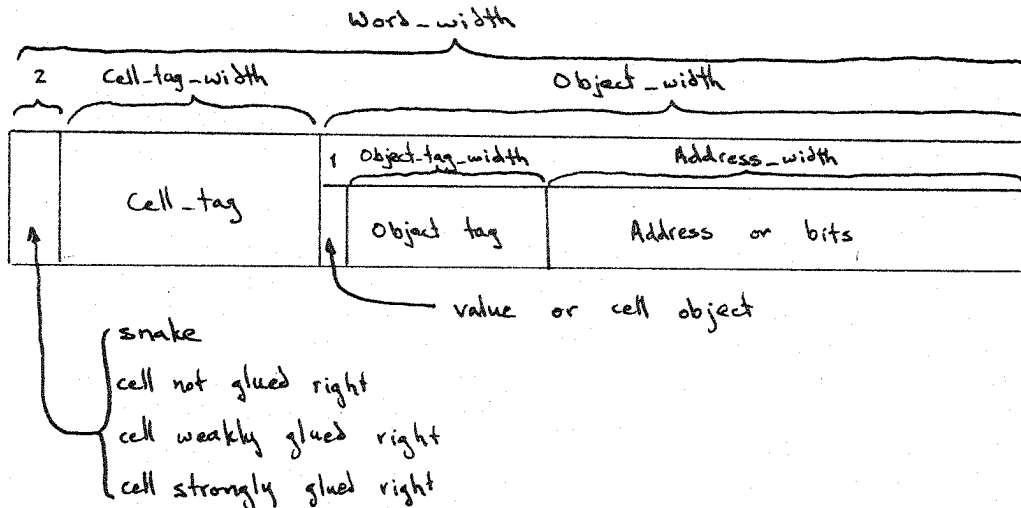 Word_width
2 Cell_tag_width Object_width
1 Object_tag_width Address_width
Cell_tag Object tag Address or bits
value or cell object
snake
cell not glued right
cell weakly glued right
cell strongly glued right